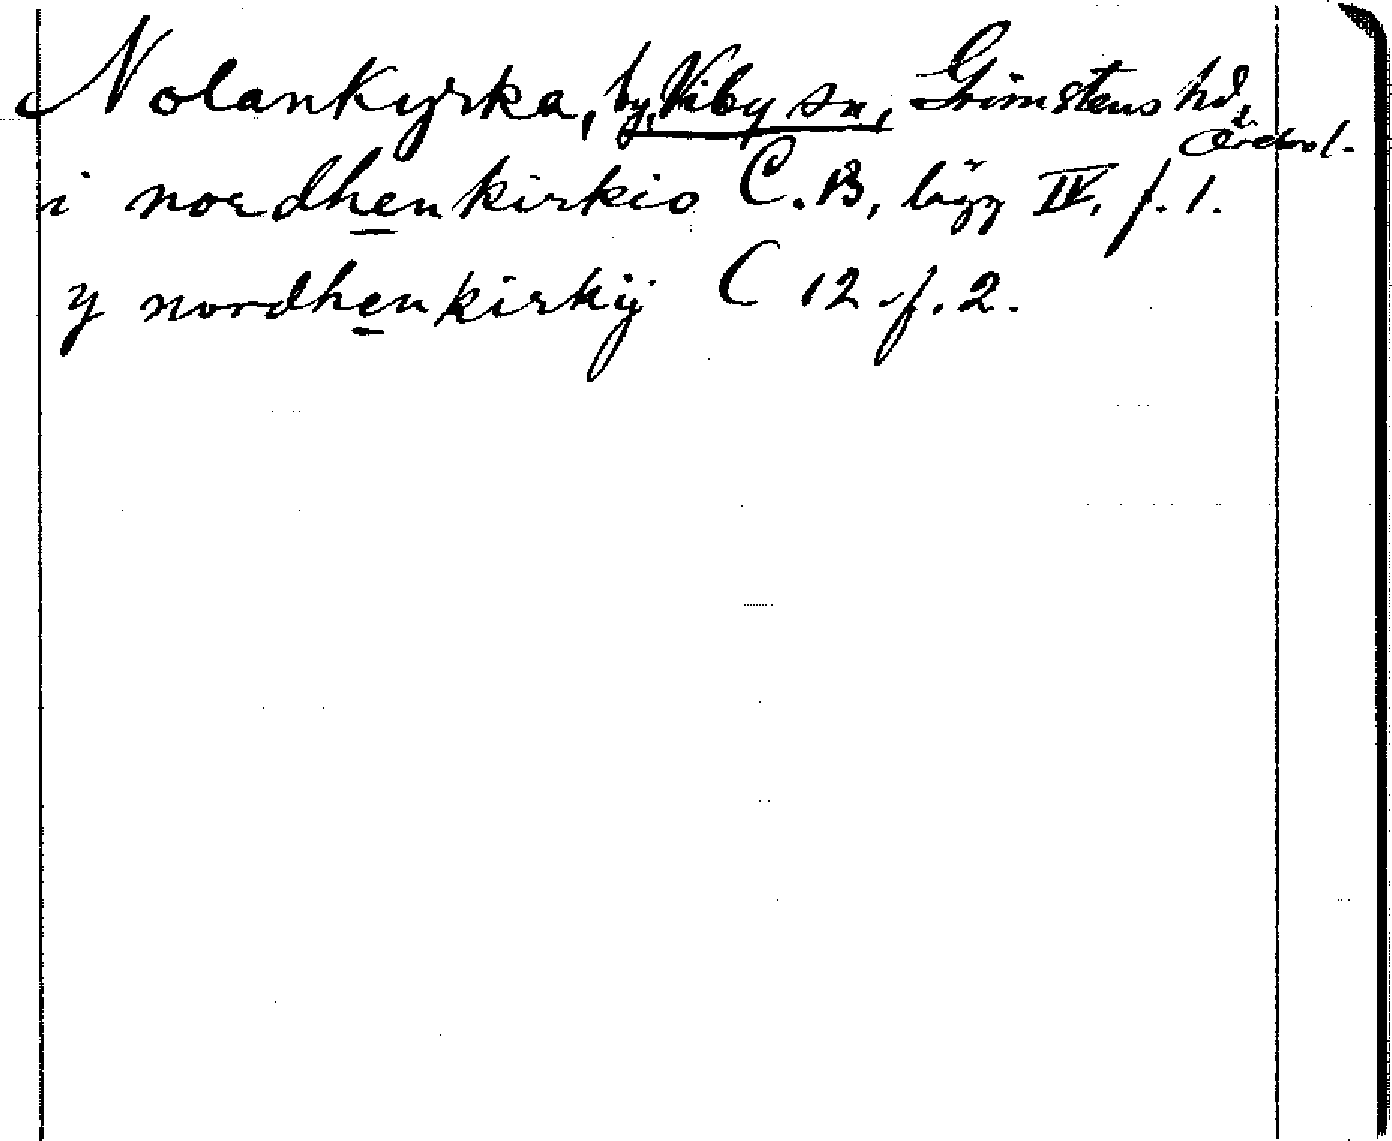 Nolankyrka, by, Viby sn, Grimstens hd, Örebro l.
i nordhenkirkio C.B, lägg IV. f. 1.
y nordhenkirkÿ C 12 f. 2.